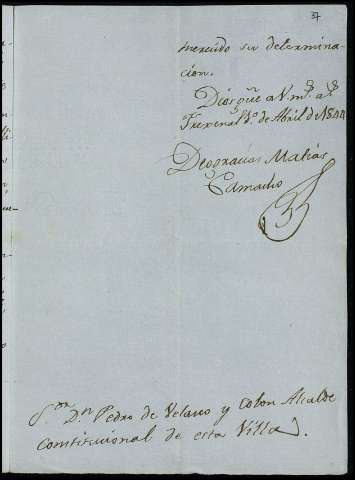 37
merecido su determina-
cion.
Dios gũe a V. m.s a.s
Frexenal 1.o de Abril de 1844
Deogracias Matias
Camacho
S.or D.n Pedro de Velasco y Colon Alcalde
Constitucional de esta Villa.